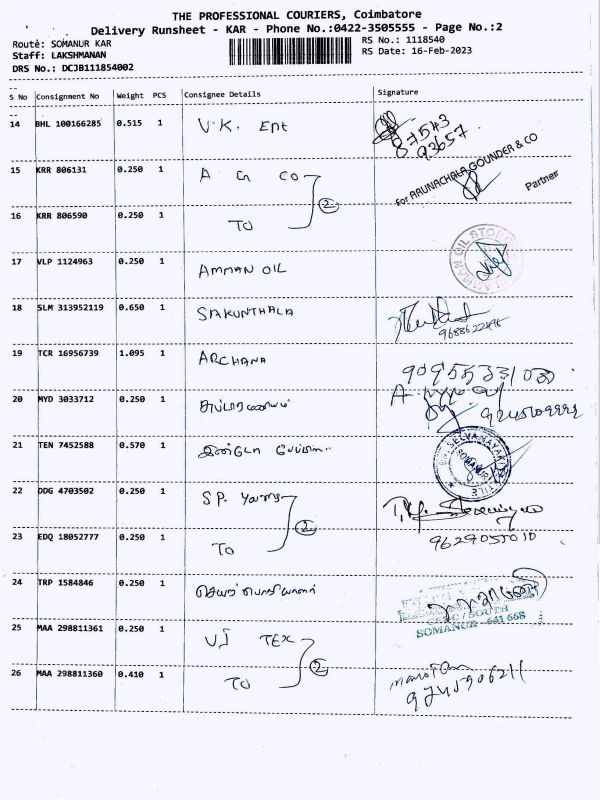 THE PROFESSIONAL COURIERS, Coimbatore
Delivery Runsheet - KAR - Phone No.:0422-3505555 - Page No.:2
Route: SOMANUR KAR
RS No.: 1118540
Staff: LAKSHMANAN
RS Date: 16-Feb-2023
DRS No.: DCJB111854002
S No Consignment No Weight PCS Consignee Details Signature
14 BHL 100166285 0.515 1 V.K. Ent
87543
93657
15 KRR 806131 0.250 1 A G CO 2
For ARUNACHALA GOUNDER & CO
Partner
16 KRR 806590 0.250 1 TO
17 VLP 1124963 0.250 1 AMMAN OIL
18 SLM 313952119 0.650 1 SAKUNTHALA
19 TCR 16956739 1.095 1 ARCHANA
20 MYD 3033712 0.250 1
21 TEN 7452588 0.570 1
SOMANUR
22 DDG 4703502 0.250 1 S.P. Yarns 2
23 EDQ 18052777 0.250 1 TO
24 TRP 1584846 0.250 1
SOUTH
SOMANUR - 641 668
25 MAA 298811361 0.250 1 VJ TEX 2
26 MAA 298811360 0.410 1 TO